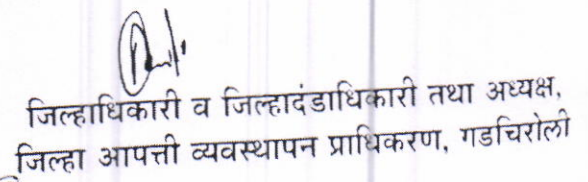 जिल्हाधिकारी व जिल्हादंडाधिकारी तथा अध्यक्ष,
जिल्हा आपत्ती व्यवस्थापन प्राधिकरण, गडचिरोली